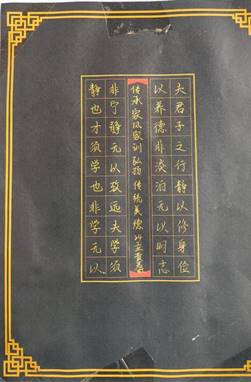 夫君子之行静以修身俭
以养德非淡泊无以明志
传承家风家训弘扬传统美德
非宁静无以致远夫学须
静也才须学也非学无以